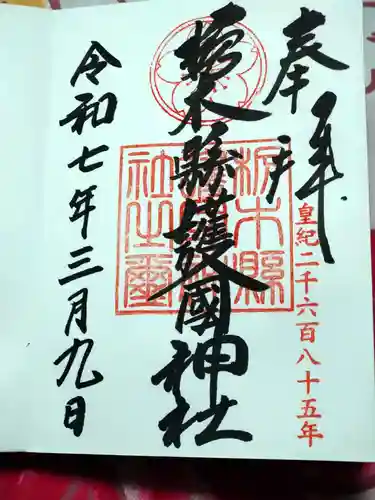 奉拝
皇紀二千六百八十五年
栃木縣護國神社
栃木縣護國神社之璽
令和七年三月九日